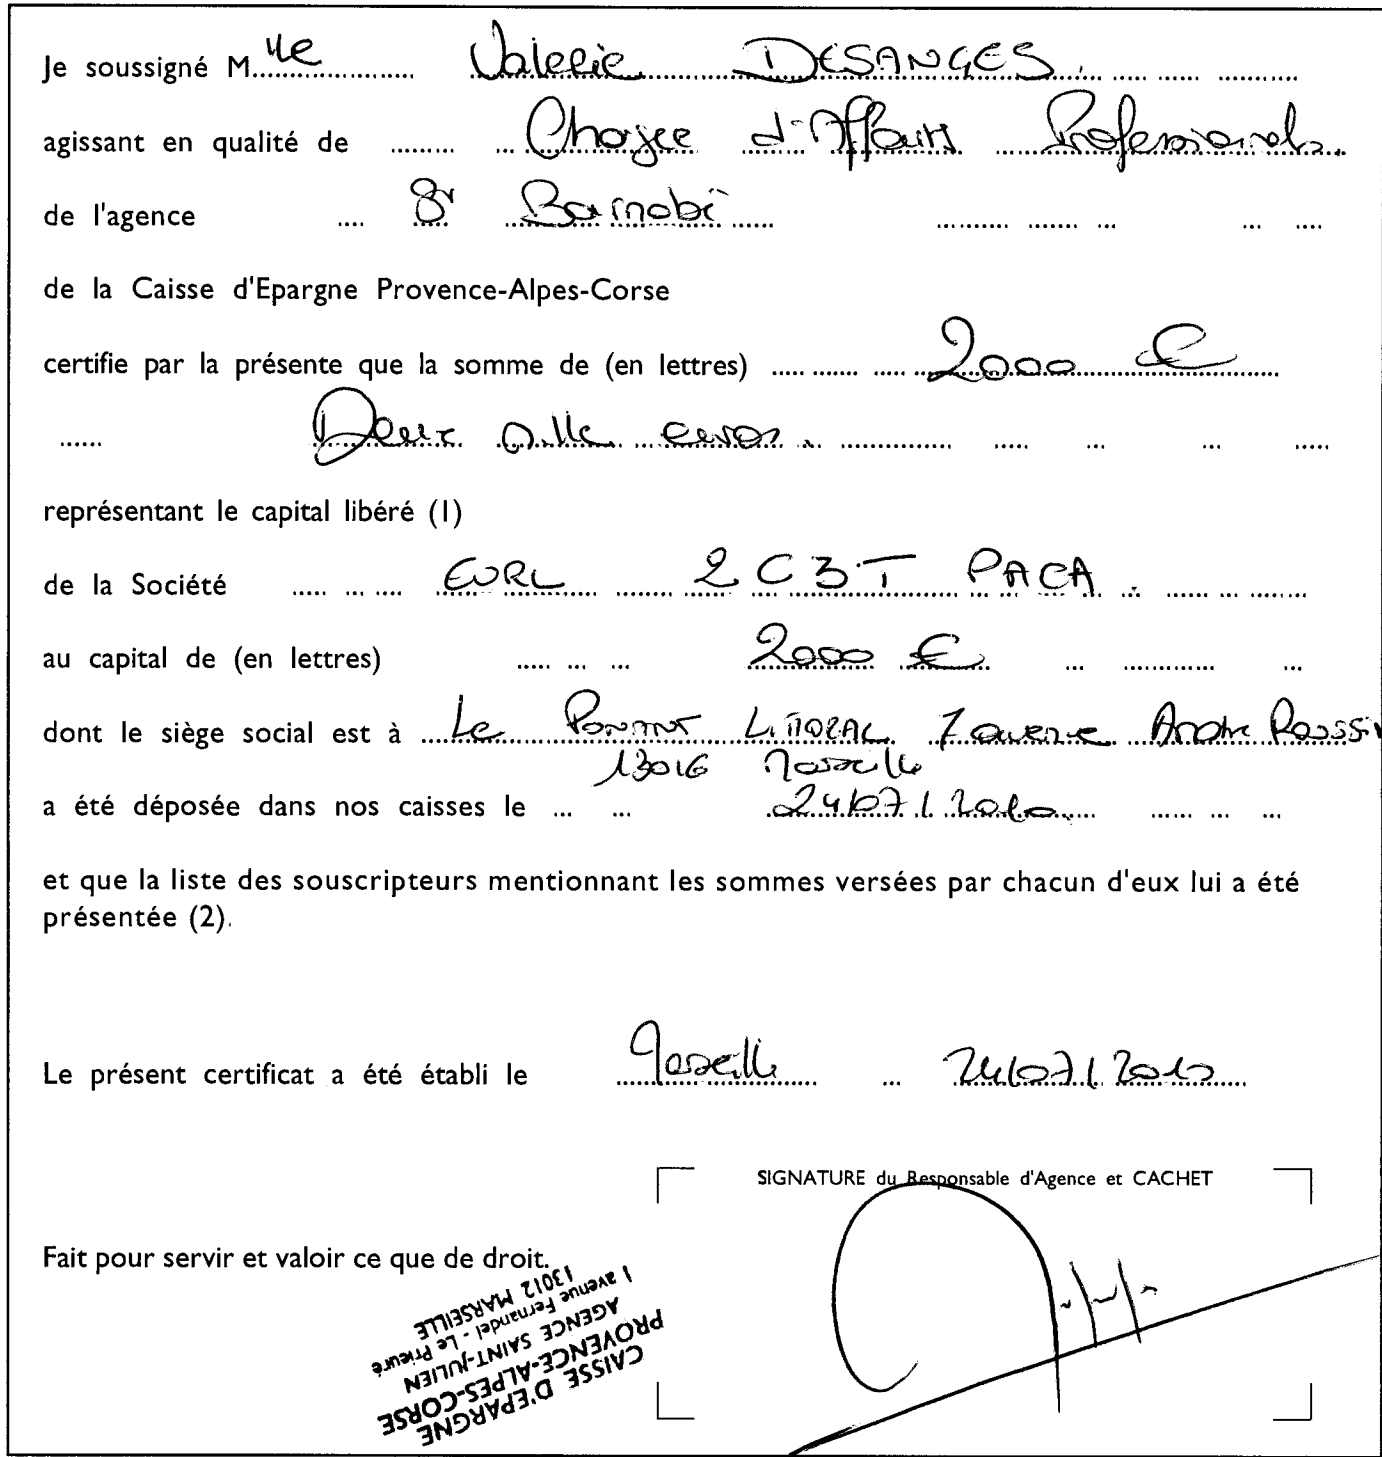 Je soussigné Mlle Valerie DESANGES.
agissant en qualité de Chargee d'Affaires Professionnels.
de l'agence St Barnabé
de la Caisse d'Epargne Provence-Alpes-Corse
certifie par la présente que la somme de (en lettres) 2000 €
Deux mille euros.
représentant le capital libéré (1)
de la Société EURL 2C3T PACA.
au capital de (en lettres) 2000 €
dont le siège social est à Le Ponant Littoral 7 avenue Andre Roussin
13016 Marseille
a été déposée dans nos caisses le 24/07/2010
et que la liste des souscripteurs mentionnant les sommes versées par chacun d'eux lui a été
présentée (2).
Le présent certificat a été établi le Marseille 24/07/2010
SIGNATURE du Responsable d'Agence et CACHET
Fait pour servir et valoir ce que de droit.
CAISSE D'EPARGNE
PROVENCE-ALPES-CORSE
AGENCE SAINT-JULIEN
1 avenue Fernandel - Le Prieuré
13012 MARSEILLE